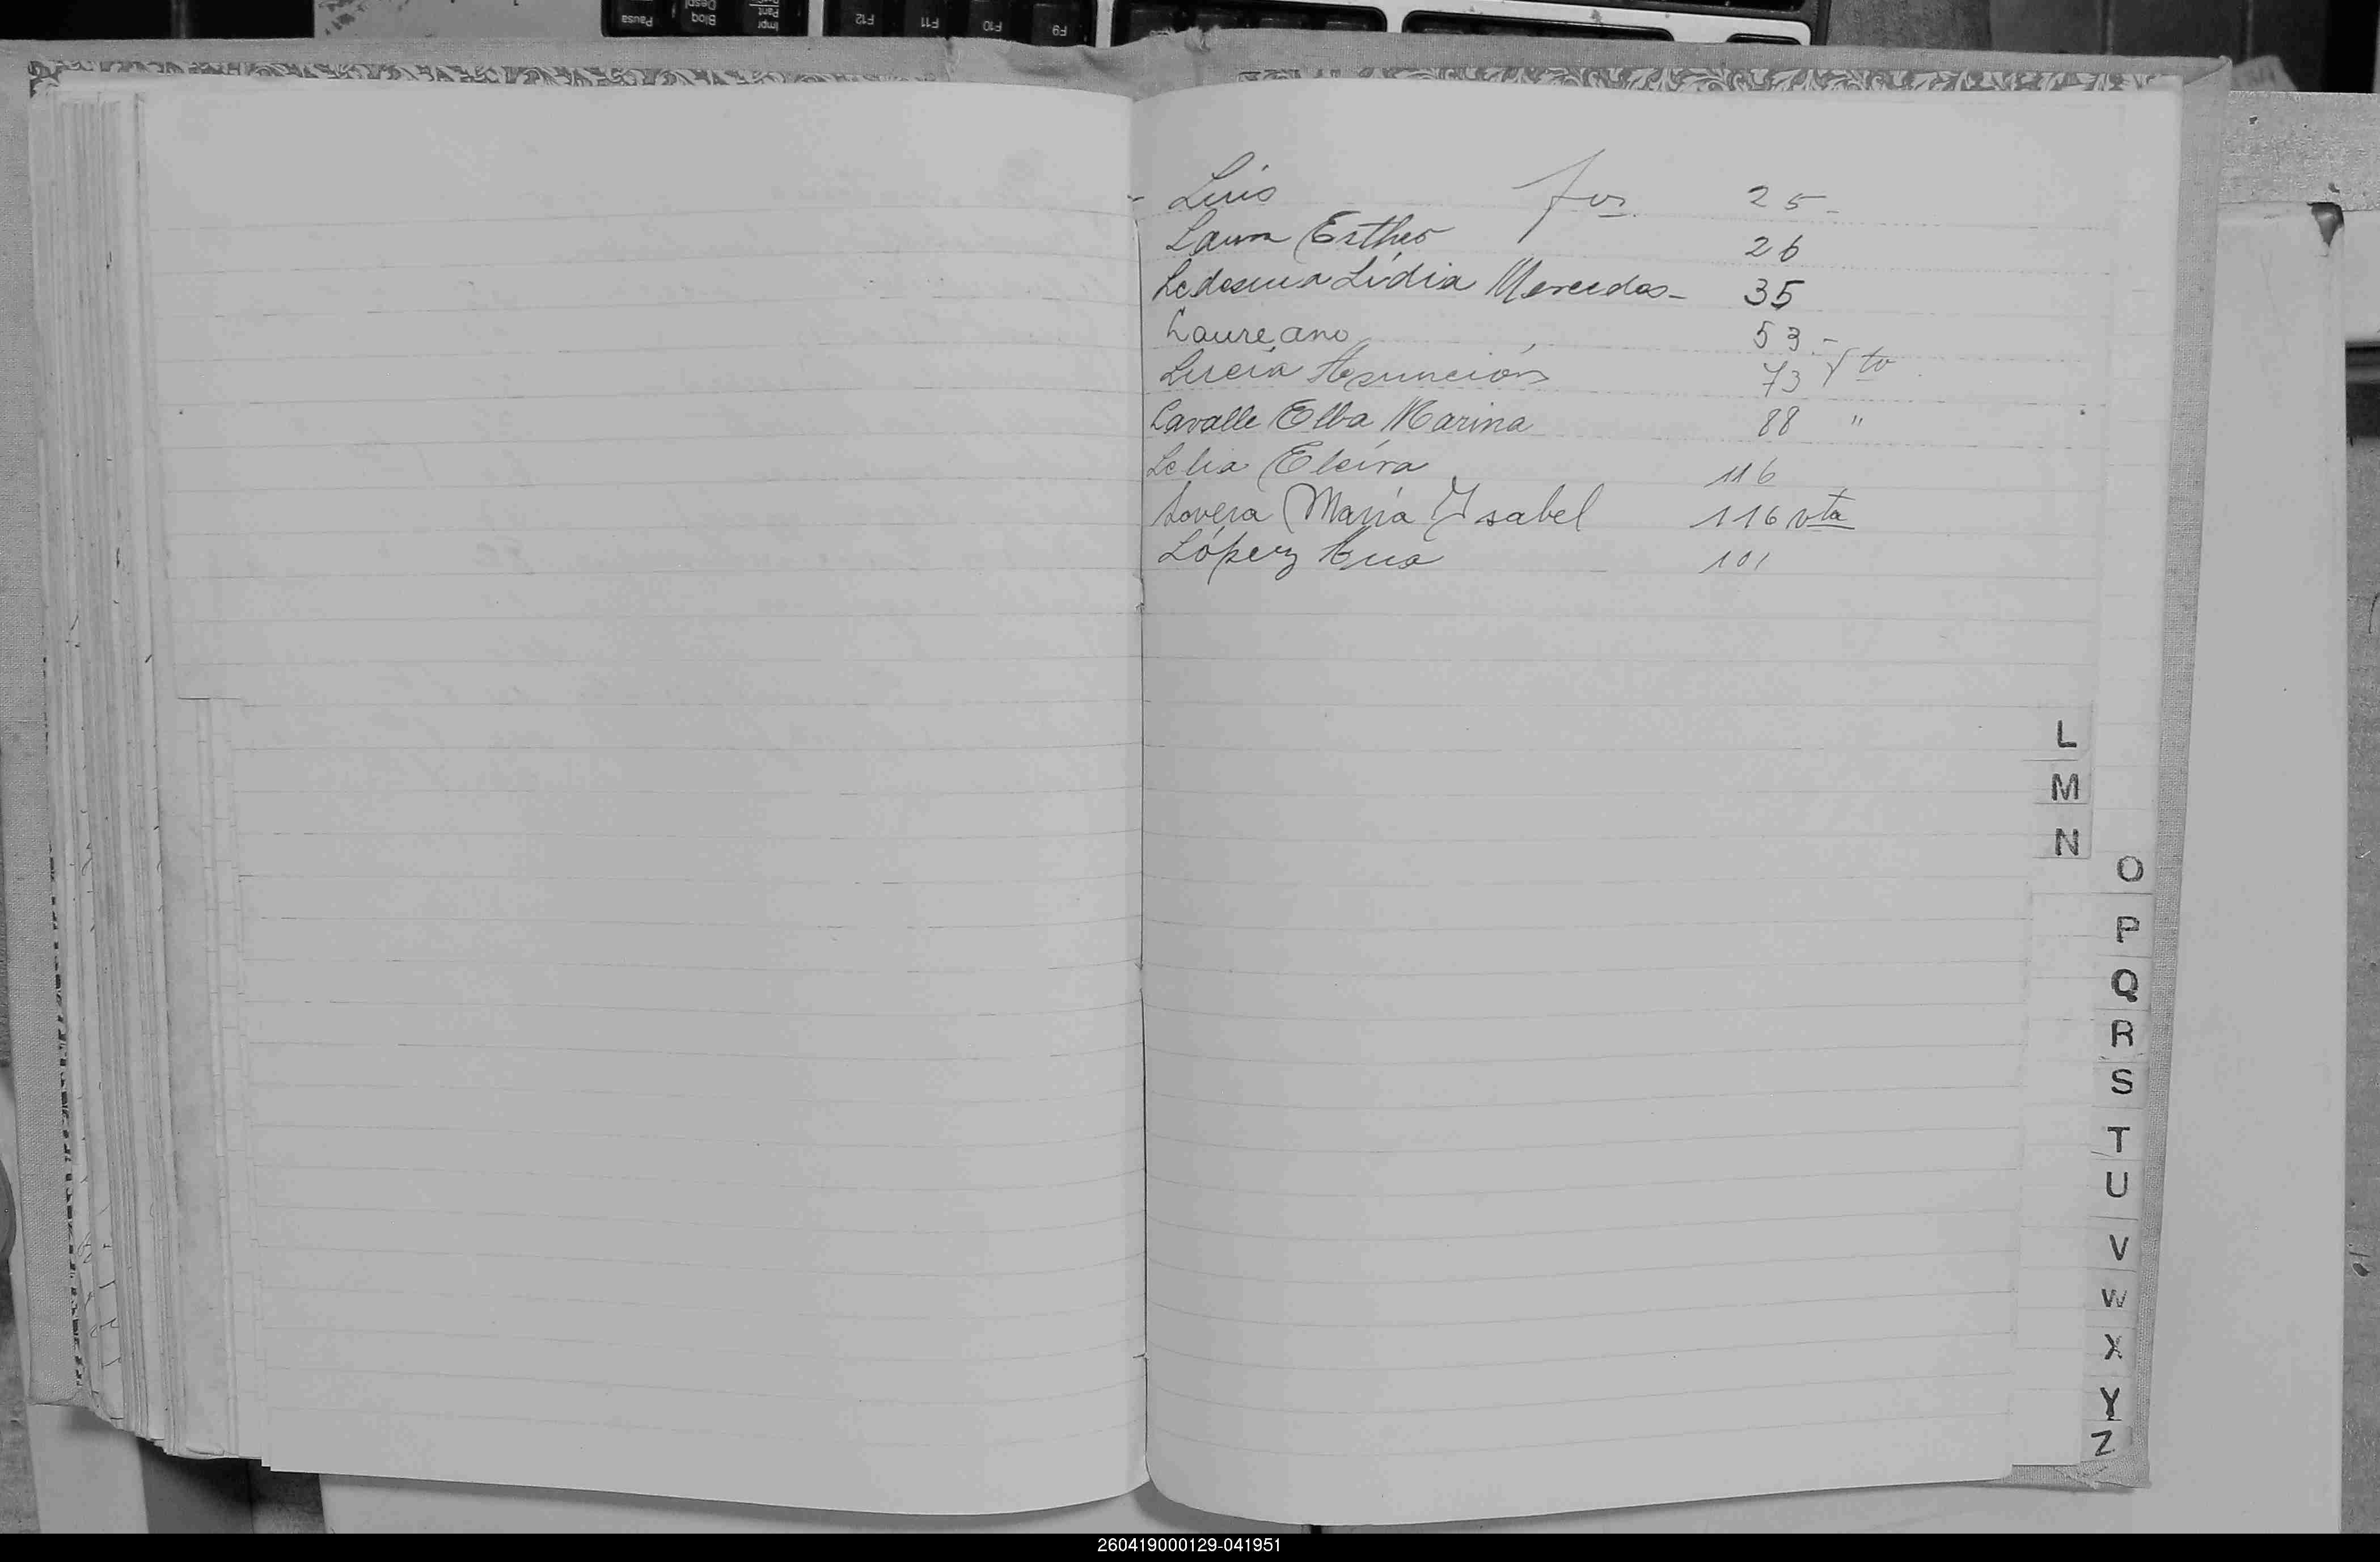 Luis fos. 25-
Laura Esther 26
Ledesma Lidia Mercedes- 35
Laureano 53.-
Lucía Asunción 73 Vto
Lavalle Elba Marina 88 "
Lelia Elcira 116
Lovera María Ysabel 116 vta
López Ana 101
L
M
N
O
P
Q
R
S
T
U
V
W
X
Y
Z
260419000129-041951